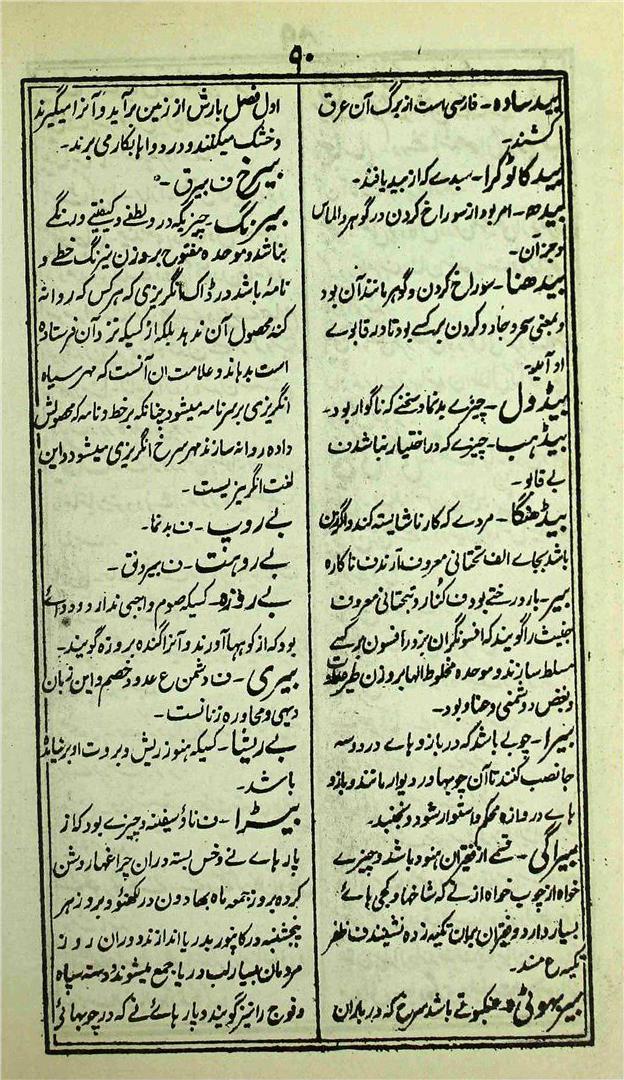 ۹۰
بید سادہ - فارسی است از برگ آن عرق
کشند -
بید کا ٹوکرا - سبدے کہ از بید بافند -
بیدھ - امر بود از سوراخ کردن در گوہر و الماس
و جز آن -
بیدھنا - سوراخ کردن و گوہر مانند آن بود
و بمعنی سحر و جادو کردن بر کسے بود تا در قابوے
او آید -
بیڈول - چیزے بدنما و سخنے کہ ناگوار بود -
بیڈہب - چیزے کہ در اختیار نباشد ن
بے قابو -
بیڈھنگا - مردے کہ کار ناشایستہ کند و اگر زن
باشد بجاے الف تحتانی معروف آرند ن ناکارہ
بیر - بار درختے بود ف کُنار و تبحتانی معروف
خبیث را گویند کہ افسونگران بزور افسون بر کسے
مسلط سازند و موحدہ مخلوط الہا بروزن
و بغض و دشمنی و عناد بود -
بیرا - چوبے باشد کہ در بازوہاے در دو سہ
جا نصب کنند تا آن چوبہا در دیوار ماند و بازو
ہاے دروازہ محکم و استوار شود و نجنبد -
بیراگی - قسمے از فقیران ہنود باشد و چیزے
خواہ از چوب خواہ از نے کہ شاخہا و کجی ہائے
بسیار دارد و فقیران بران تکیہ زدہ نشینند ف ظفر
تکیہ ع مند -
بیر بہوٹی - عنکبوتے باشد سرخ کہ در باران
اول فصل بارش از زمین برآید و آنرا میگیرند
و خشک میکنند و در دواہا بکار می برند -
بیرخ ف بیرق -
بیرنگ - چیزیکہ در و لطفے و کیفیتے و رنگے
نباشد و موحدہ مفتوح بروزن نیرنگ خطے و
نامہ باشد در ڈاک انگریزی کہ ہر کس کہ روانہ
کند محصول آن ندہد بلکہ از کسیکہ نزد آن فرستادہ
است بدہاند و علامت ان آنست کہ مہر سیاہ
انگریزی بر سر نامہ میشود چنانکہ بر خط و نامہ کہ محصولش
دادہ روانہ سازند مہر سرخ انگریزی میشود و این
لغت انگریزیست -
بے روپ - ف بدنما -
بے روہنت - ف بیرونق -
بے روزہ - کسیکہ صوم واجبی ندارد و دوائے
بود کہ از کوہہا آورند و آنرا گندہ بروزہ گویند -
بیری - ف دشمن ع عدو و خصم و این زبان
دیہی و محاورہ زنانست -
بے ریشا - کسیکہ ہنوز ریش و بروت او برنیامدہ
باشد -
بیڑا - ف ناؤ سفینہ و چیزے بود کہ از
پارہاے نے و خس بستہ دران چراغہا روشن
کردہ بروز جمعہ ماہ بھادون در لکھنؤ و بروز ہر
پنجشنبہ در کانپور بدریا اندازند و دران روز
مردمان بسیار لب دریا جمع میشوند و دستہ سپاہ
و فوج را نیز گویند و پارہائے نے کہ در چوبہائی